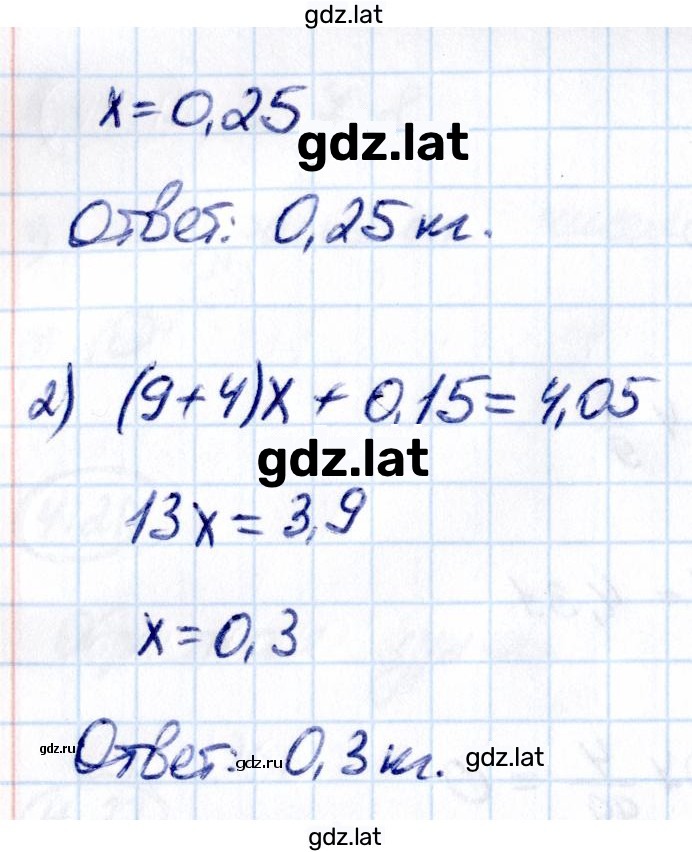 gdz.lat
x = 0,25
gdz.lat
Ответ: 0,25 кг.
2) (9+4)x + 0,15 = 4,05
gdz.lat
13x = 3,9
x = 0,3
gdz.ru Ответ: gdz.ru 0,3 кг. gdz.lat
gdz.lat